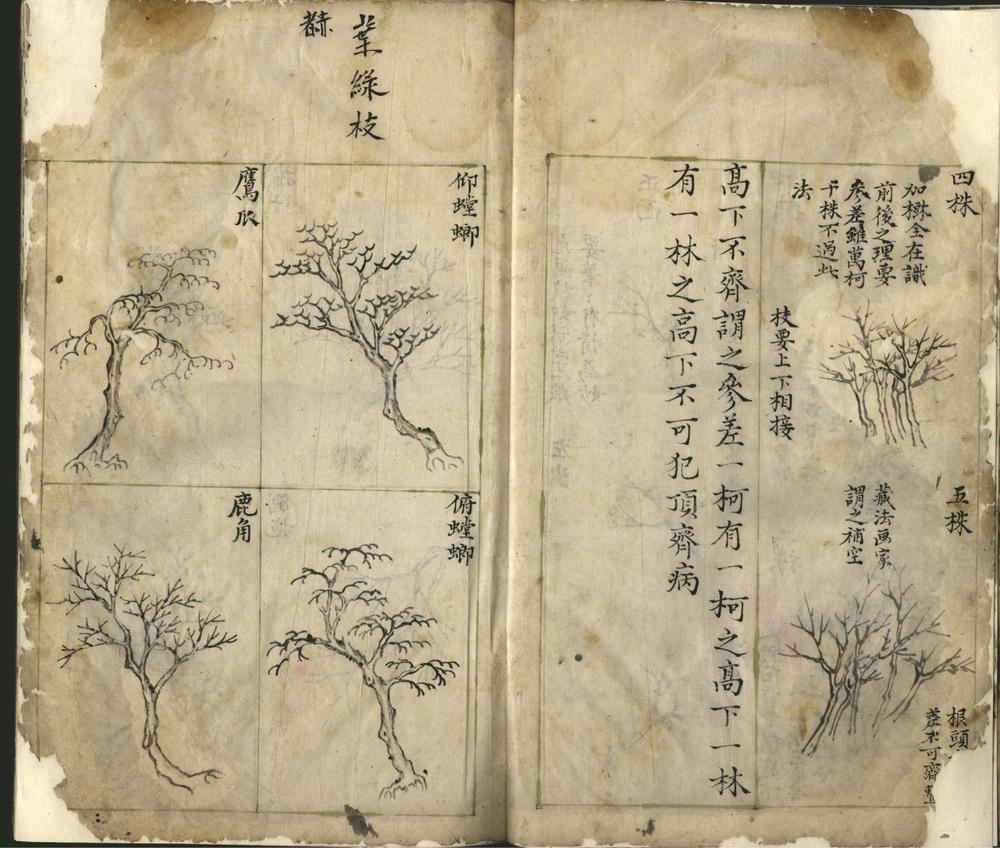 四株
加橪全在識
前後之理要
參差雖萬柯
千株不過此
法
枝要上下相接
五株
藏法画家
謂之補空
根頭
差不可齊
高下不齊謂之參差一柯有一柯之高下一林
有一林之高下不可犯頂齊病
葉綠枝
仰螳螂
鷹爪
俯螳螂
鹿角